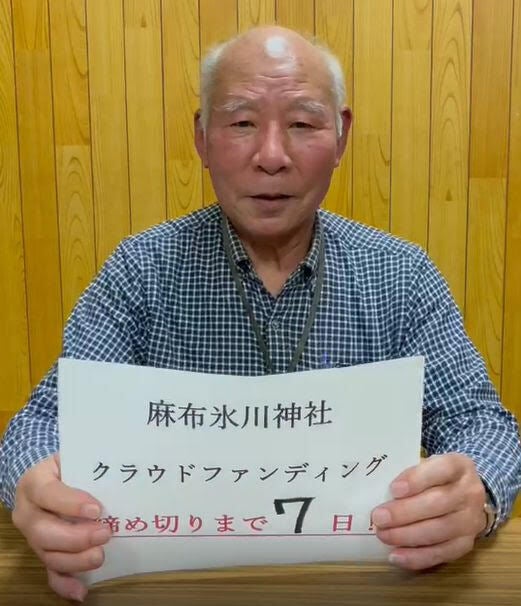 麻布氷川神社
クラウドファンディング
締め切りまで7日!